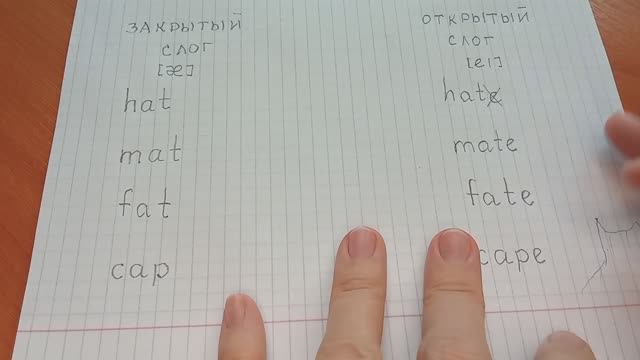 ЗАКРЫТЫЙ
СЛОГ
[æ]
hat
mat
fat
cap
ОТКРЫТЫЙ
СЛОГ
[eı]
hate
mate
fate
cape